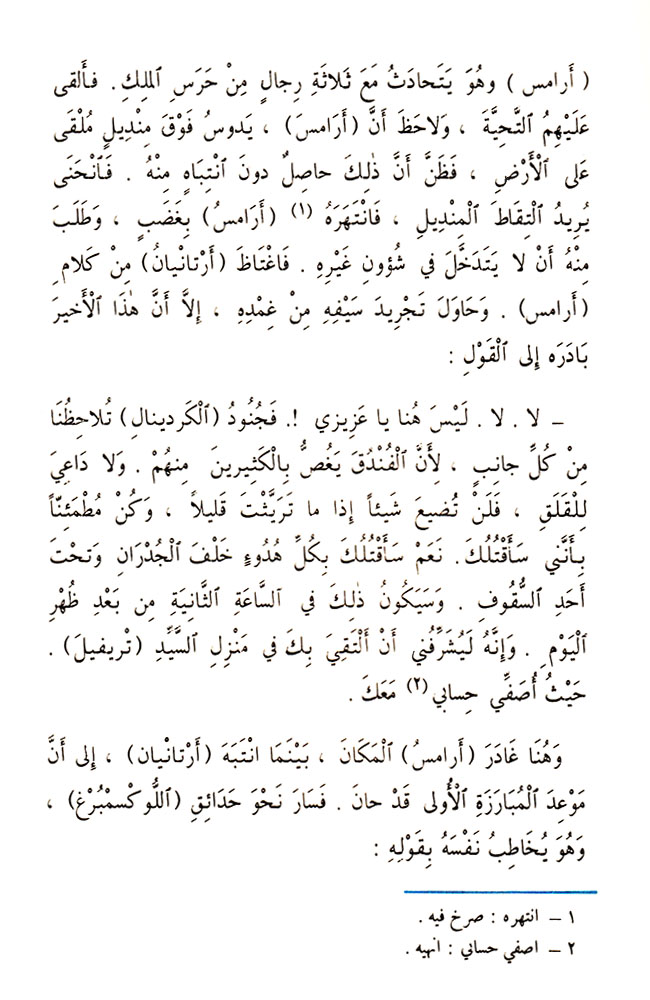 ( أَرامس ) وهُوَ يَتَحادَثُ مَعَ ثَلاثَةِ رِجالٍ مِنْ حَرَسِ ٱلملِكِ . فأَلقى
عَلَيْهِمُ ٱلتَّحِيَّةَ ، وَلاحَظَ أَنَّ (أَرَامسَ) ، يَدوسُ فَوْقَ مِنْديلٍ مُلْقَى
عَلى ٱلْأَرْضِ ، فَظَنَّ أَنَّ ذٰلِكَ حاصِلٌ دونَ ٱنْتِبَاهٍ مِنْهُ . فَٱنْحَنَى
يُرِيدُ ٱلْتِقاطَ ٱلْمِنْدِيلِ ، فَانْتَهَرَهُ (١) (أَرَامسُ) بِغَضَبٍ ، وَطَلَبَ
مِنْهُ أَنْ لا يَتَدَخَّلَ في شُؤونِ غَيْرِهِ . فَاغْتَاظَ (أَرْتانيانُ) مِنْ كَلامِ
(أَرامس) . وَحَاوَلَ تَجْرِيدَ سَيْفِهِ مِنْ غِمْدِهِ ، إِلاَّ أَنَّ هٰذَا ٱلْأَخيرَ
بَادَرَه إِلى ٱلْقَوْلِ :
– لا . لا . لَيْسَ هُنا يا عَزيزي !. فَجُنُودُ (ٱلْكَردينالِ) تُلاحِظُنَا
مِنْ كُلِّ جانِبٍ ، لِأَنَّ ٱلْفُنْدُقَ يَغُصُّ بِالْكَثِيرينَ مِنهُمْ . وَلا دَاعِيَ
لِلْقَلَقِ ، فَلَنْ تُضيعَ شَيئاً إِذا ما تَرَيَّثْتَ قَليلاً ، وَكُنْ مُطْمَئِنّاً
بِأَنَّني سَأَقْتُلُكَ. نَعَمْ سَأَقْتُلُكَ بِكُلِّ هُدُوءٍ خَلْفَ ٱلْجُدْرَانِ وَتحْتَ
أَحَدِ ٱلسُّقُوفِ . وَسَيَكُونُ ذٰلِكَ في ٱلسَّاعَةِ ٱلثَّانِيَةِ مِن بَعْدِ ظُهْرِ
ٱلْيَوْمِ . وَإِنَّهُ لَيُشَرِّفُني أَنْ أَلْتَقِيَ بِكَ في مَنْزِلِ ٱلسَّيِّدِ (تْريفيلَ) .
حَيْثُ أُصَفِّي حِسابي(٢) مَعَكَ .
وَهُنَا غَادَرَ (أَرامسُ) ٱلْمَكَانَ ، بَيْنَمَا انْتَبَهَ (أَرْتانيان) ، إِلى أَنَّ
مَوْعِدَ ٱلْمُبَارَزَةِ ٱلْأُولى قَدْ حانَ . فَسَارَ نَحْوَ حَدَائِقِ (ٱللُّوكْسمْبُرْغ) ،
وَهُوَ يُخَاطِبُ نَفْسَهُ بِقَوْلِهِ :
١ – انتهره : صرخ فيه .
٢ – اصفي حسابي : انهيه .